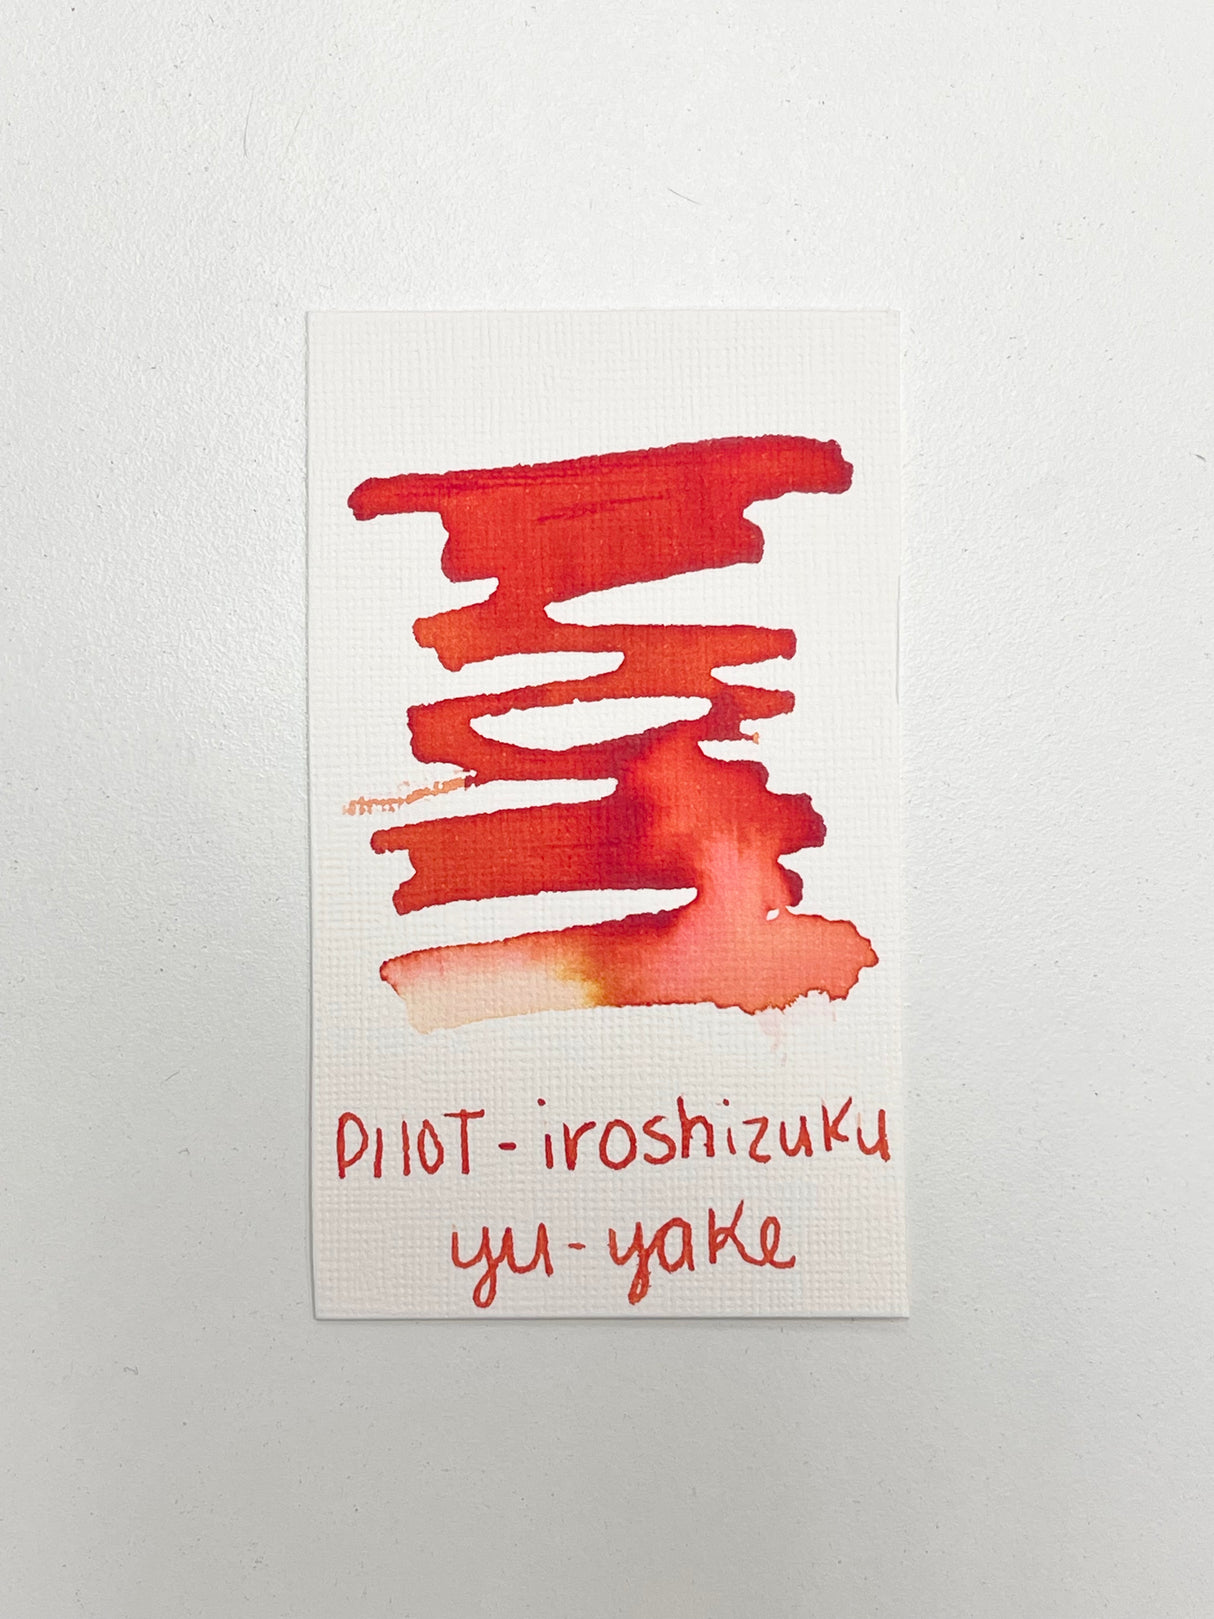 PILOT - iroshizuku
yu - yake